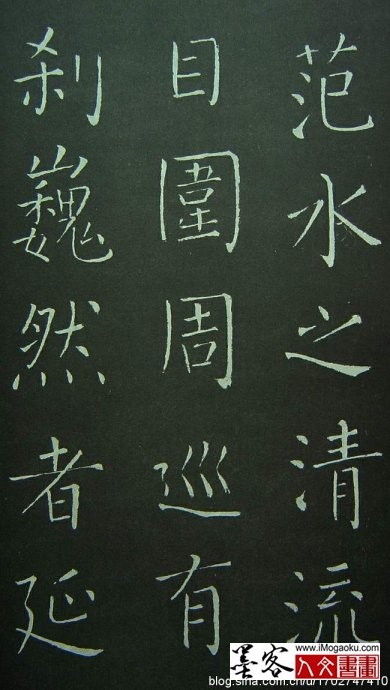 范水之清流
目围周巡有
刹巍然者延
www.iMogaoku.com
墨客
人文書畫
blog.sina.com.cn/u/1702747410